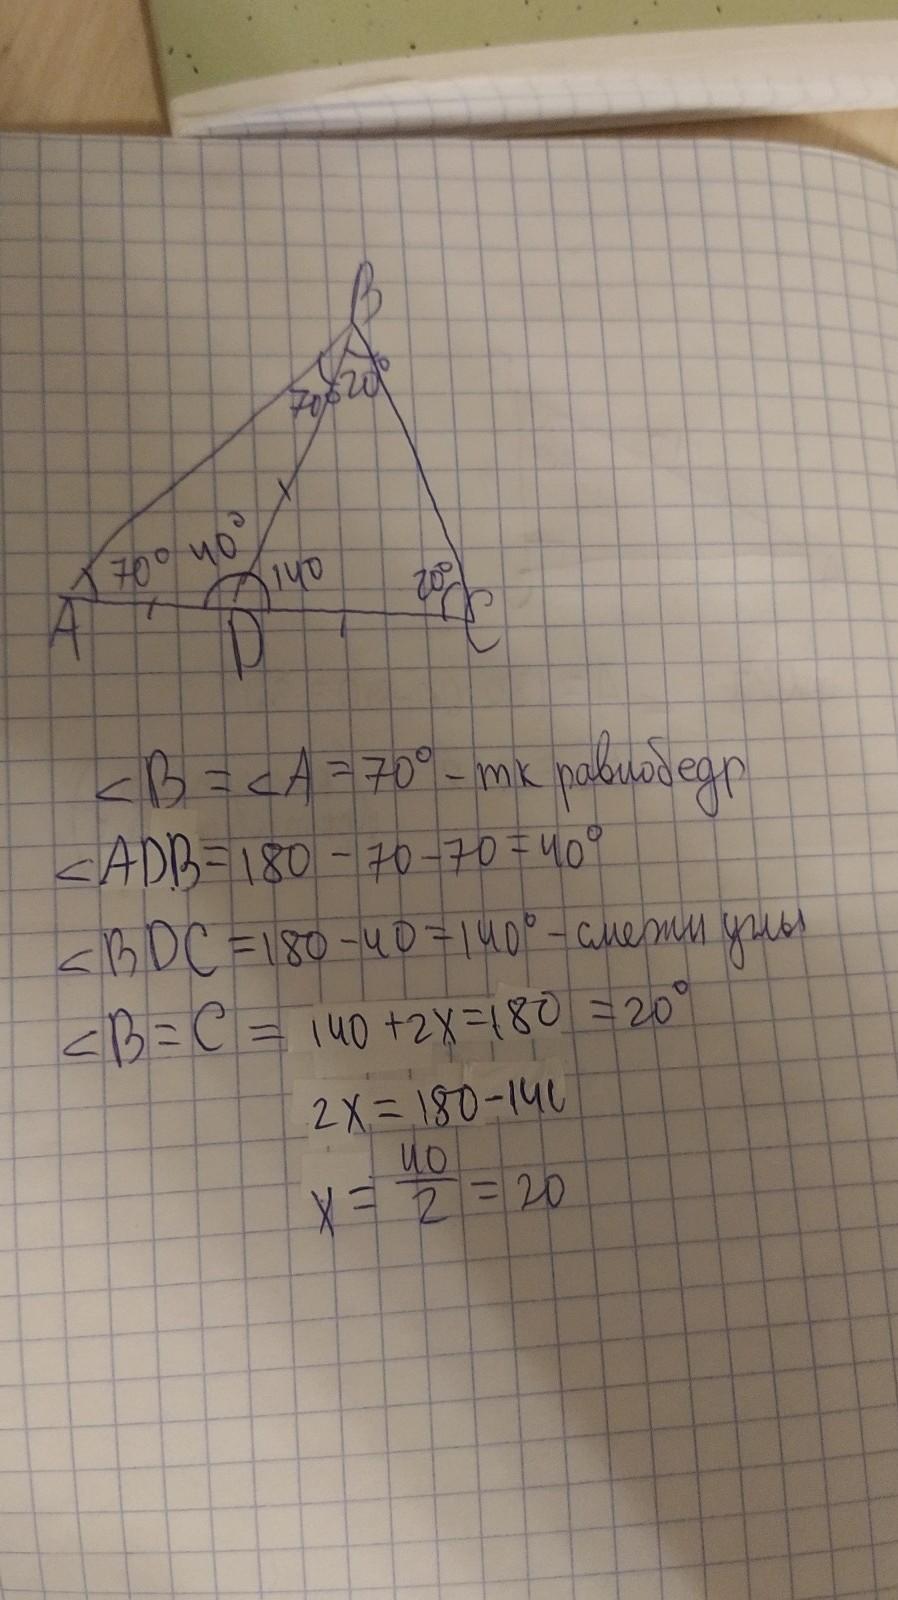 B
70° 20°
70° 40° 140 20°
A D C
∠B = ∠A = 70° - тк равнобедр
∠ADB = 180 - 70 - 70 = 40°
∠BDC = 180 - 40 = 140° - смежн углы
∠B = C = 140 + 2x = 180 = 20°
2x = 180 - 140
x = 40/2 = 20